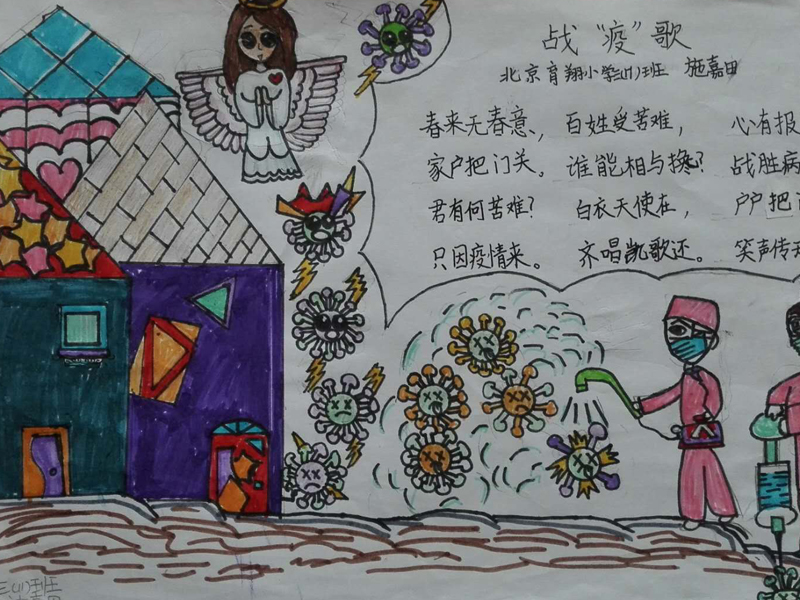 战“疫”歌
北京育翔小学三(1)班 施嘉田
春来无春意, 百姓受苦难, 心有报
家户把门关。 谁能相与搀? 战胜病
君有何苦难? 白衣天使在, 户户把
只因疫情来。 齐唱凯歌还。 笑声传
三(1)班